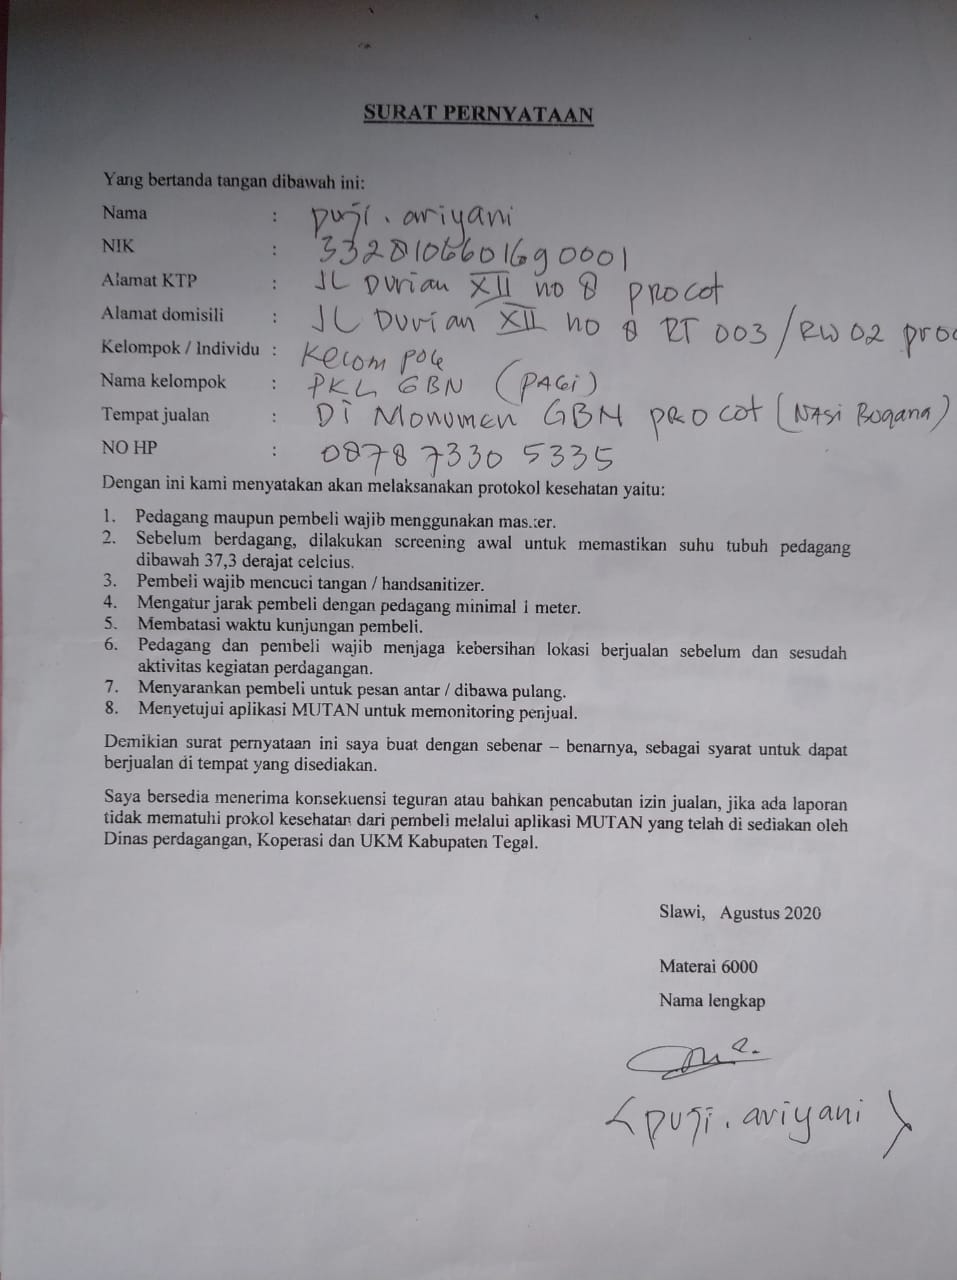 SURAT PERNYATAAN
Yang bertanda tangan dibawah ini:
Nama : puji. ariyani
NIK : 3328106601690001
Alamat KTP : JL Durian XII no 8 procot
Alamat domisili : JL Durian XII no 8 RT 003/RW 02 proc
Kelompok / Individu : Kelompok
Nama kelompok : PKL GBN (PAGi)
Tempat jualan : Di Monumen GBN procot (NASi Bogana)
NO HP : 0878 7330 5335
Dengan ini kami menyatakan akan melaksanakan protokol kesehatan yaitu:
1. Pedagang maupun pembeli wajib menggunakan masker.
2. Sebelum berdagang, dilakukan screening awal untuk memastikan suhu tubuh pedagang
dibawah 37,3 derajat celcius.
3. Pembeli wajib mencuci tangan / handsanitizer.
4. Mengatur jarak pembeli dengan pedagang minimal 1 meter.
5. Membatasi waktu kunjungan pembeli.
6. Pedagang dan pembeli wajib menjaga kebersihan lokasi berjualan sebelum dan sesudah
aktivitas kegiatan perdagangan.
7. Menyarankan pembeli untuk pesan antar / dibawa pulang.
8. Menyetujui aplikasi MUTAN untuk memonitoring penjual.
Demikian surat pernyataan ini saya buat dengan sebenar – benarnya, sebagai syarat untuk dapat
berjualan di tempat yang disediakan.
Saya bersedia menerima konsekuensi teguran atau bahkan pencabutan izin jualan, jika ada laporan
tidak mematuhi prokol kesehatan dari pembeli melalui aplikasi MUTAN yang telah di sediakan oleh
Dinas perdagangan, Koperasi dan UKM Kabupaten Tegal.
Slawi, Agustus 2020
Materai 6000
Nama lengkap
(puji. ariyani)